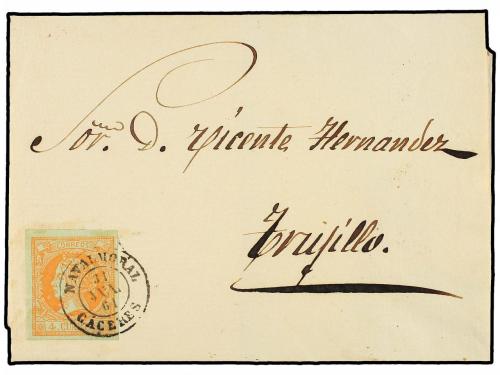 Sor. D. Vicente Hernandez
Trujillo.
CORREOS
4 CU
NAVALMORAL
31
61
CACERES